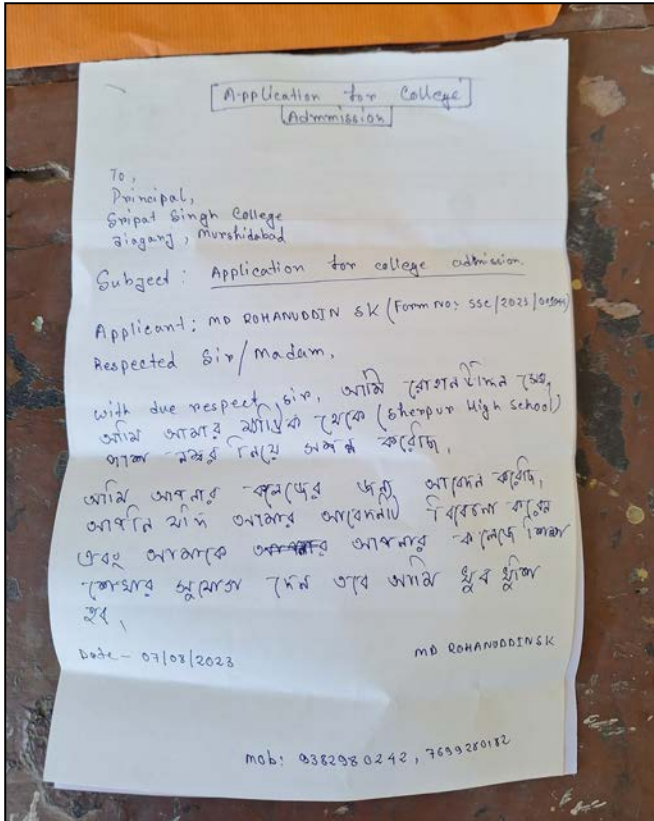 Application for College
Admmission
To,
Principal,
Sripat Singh College
Jiaganj, Murshidabad
Subject: Application for college admission.
Applicant: MD ROHANUDDIN SK (Form No: SSC/2023/
Respected Sir/Madam,
with due respect sir, আমি রোহানউদ্দিন সেখ,
আমি আমার মাধ্যমিক থেকে (Sherpur High School)
পাশ নম্বর নিয়ে সম্পন্ন করেছি,
আমি আপনার কলেজের জন্য আবেদন করেছি,
আপনি যদি আমার আবেদনটি বিবেচনা করেন
এবং আমাকে আপনার কলেজে শিক্ষা
শেখার সুযোগ দেন তবে আমি খুব খুশি
হব,
Date - 07/08/2023
MD ROHANUDDIN SK
mob: 9382980242, 7699280182